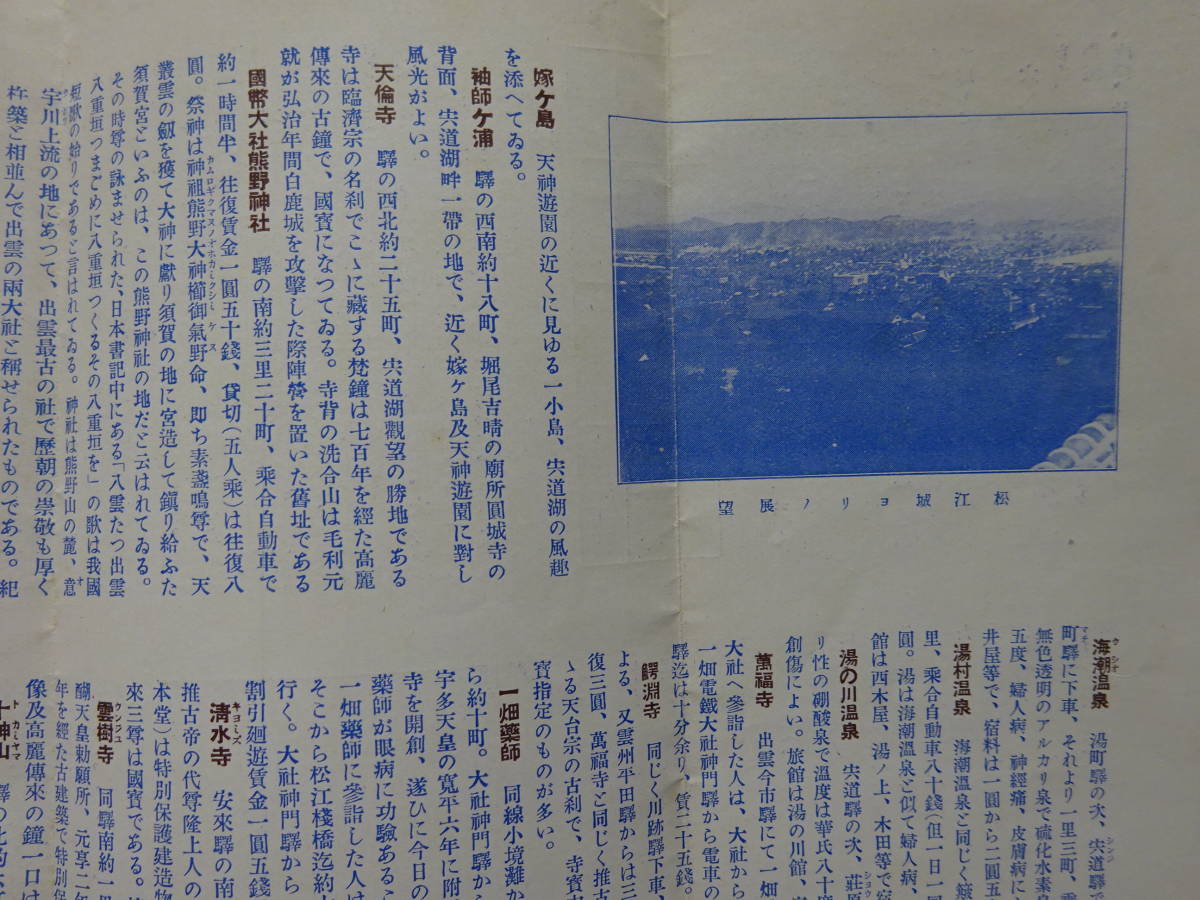 嫁ケ島　天神遊園の近くに見ゆる一小島、宍道湖の風趣
を添へてゐる。
袖師ケ浦　驛の西南約十八町、堀尾吉晴の廟所圓城寺の
背面、宍道湖畔一帶の地で、近く嫁ヶ島及天神遊園に對し
風光がよい。
天倫寺　驛の西北約二十五町、宍道湖觀望の勝地である
寺は臨濟宗の名刹でこゝに藏する梵鐘は七百年を經た高麗
傳來の古鐘で、國寳になつてゐる。寺背の洗合山は毛利元
就が弘治年間白鹿城を攻擊した際陣營を置いた舊址である
國幣大社熊野神社　驛の南約三里二十町、乘合自動車で
約一時間半、往復賃金一圓五十錢、貸切（五人乘）は往復八
圓。祭神は神祖熊野大神櫛御氣野命、即ち素盞嗚尊で、天
叢雲の劔を獲て大神に獻り須賀の地に宮造して鎭り給ふた
須賀宮といふのは、この熊野神社の地だと云はれてゐる。
その時尊の詠ませられた、日本書記中にある「八雲たつ出雲
八重垣つまごめに八重垣つくるその八重垣を」の歌は我國
短歌の始りであると言はれてゐる。神社は熊野山の麓、意
宇川上流の地にあつて、出雲最古の社で歷朝の崇敬も厚く
杵築と相並んで出雲の兩大社と稱せられたものである。紀
松江城ヨリノ展望
海潮温泉　湯町驛の次、宍道驛で
町驛に下車、それより一里三町、
無色透明のアルカリ泉で硫化水素
五度、婦人病、神經痛、皮膚病に
井屋等で、宿料は一圓から二圓五
湯村温泉　海潮温泉と同じく
里、乘合自動車八十錢（但一日一
圓。湯は海潮温泉と似て婦人病、
館は西木屋、湯ノ上、木田等で宿
湯の川温泉　宍道驛の次、莊原
リ性の硼酸泉で温度は華氏八十度
創傷によい。旅館は湯の川館、
萬福寺　出雲今市驛にて一畑
大社へ參詣した人は、大社から
一畑電鐵大社神門驛から電車の
驛迄は十分余り、賃二十五錢。
鰐淵寺　同じく川跡驛下車、
よる、又雲州平田驛からは三
復三圓、萬福寺と同じく推古
ゝる天台宗の古刹で、寺寳
寳指定のものが多い。
一畑藥師　同線小境灘か
ら約十町。大社神門驛か
宇多天皇の寬平六年に附
寺を開創、遂ひに今日の
藥師が眼病に功驗ある
一畑藥師に參詣した人は
そこから松江棧橋迄約
行く。大社神門驛から
割引廻遊賃金一圓五錢
淸水寺　安來驛の南
推古帝の代尊隆上人の
本堂）は特別保護建造物
來三尊は國寳である。
雲樹寺　同驛南約一里
醐天皇勅願所、元享二年
年を經た古建築で特別保
像及高麗傳來の鐘一口は
十神山　驛の北約